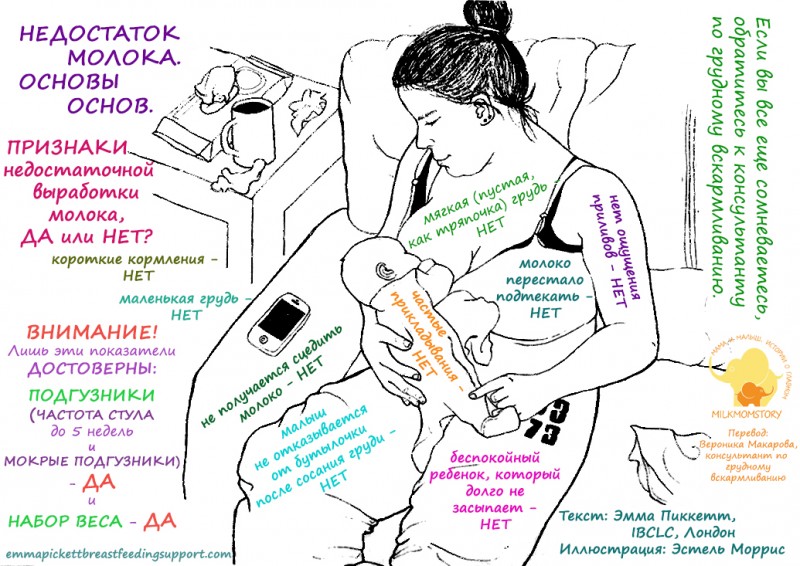 НЕДОСТАТОК
МОЛОКА.
ОСНОВЫ
ОСНОВ.
ПРИЗНАКИ
недостаточной
выработки
молока,
ДА или НЕТ?
короткие кормления -
НЕТ
маленькая грудь -
НЕТ
ВНИМАНИЕ!
Лишь эти показатели
ДОСТОВЕРНЫ:
ПОДГУЗНИКИ
(ЧАСТОТА СТУЛА
до 5 недель
и
МОКРЫЕ ПОДГУЗНИКИ)
- ДА
и
НАБОР ВЕСА - ДА
emmapickettbreastfeedingsupport.com
мягкая (пустая,
как тряпочка) грудь -
НЕТ
молоко
перестало
подтекать -
НЕТ
нет ощущения
приливов - НЕТ
частые
прикладывания -
НЕТ
не получается сцедить
молоко - НЕТ
малыш
не отказывается
от бутылочки
после сосания груди -
НЕТ
беспокойный
ребенок, который
долго не
засыпает -
НЕТ
73
Если вы все еще сомневаетесь,
обратитесь к консультанту
по грудному вскармливанию.
МАМА И МАЛЫШ. ИСТОРИИ О ГЛАВНОМ
MILKMOMSTORY
Перевод:
Вероника Макарова,
консультант по
грудному
вскармливанию
Текст: Эмма Пиккетт,
IBCLC, Лондон
Иллюстрация: Эстель Моррис